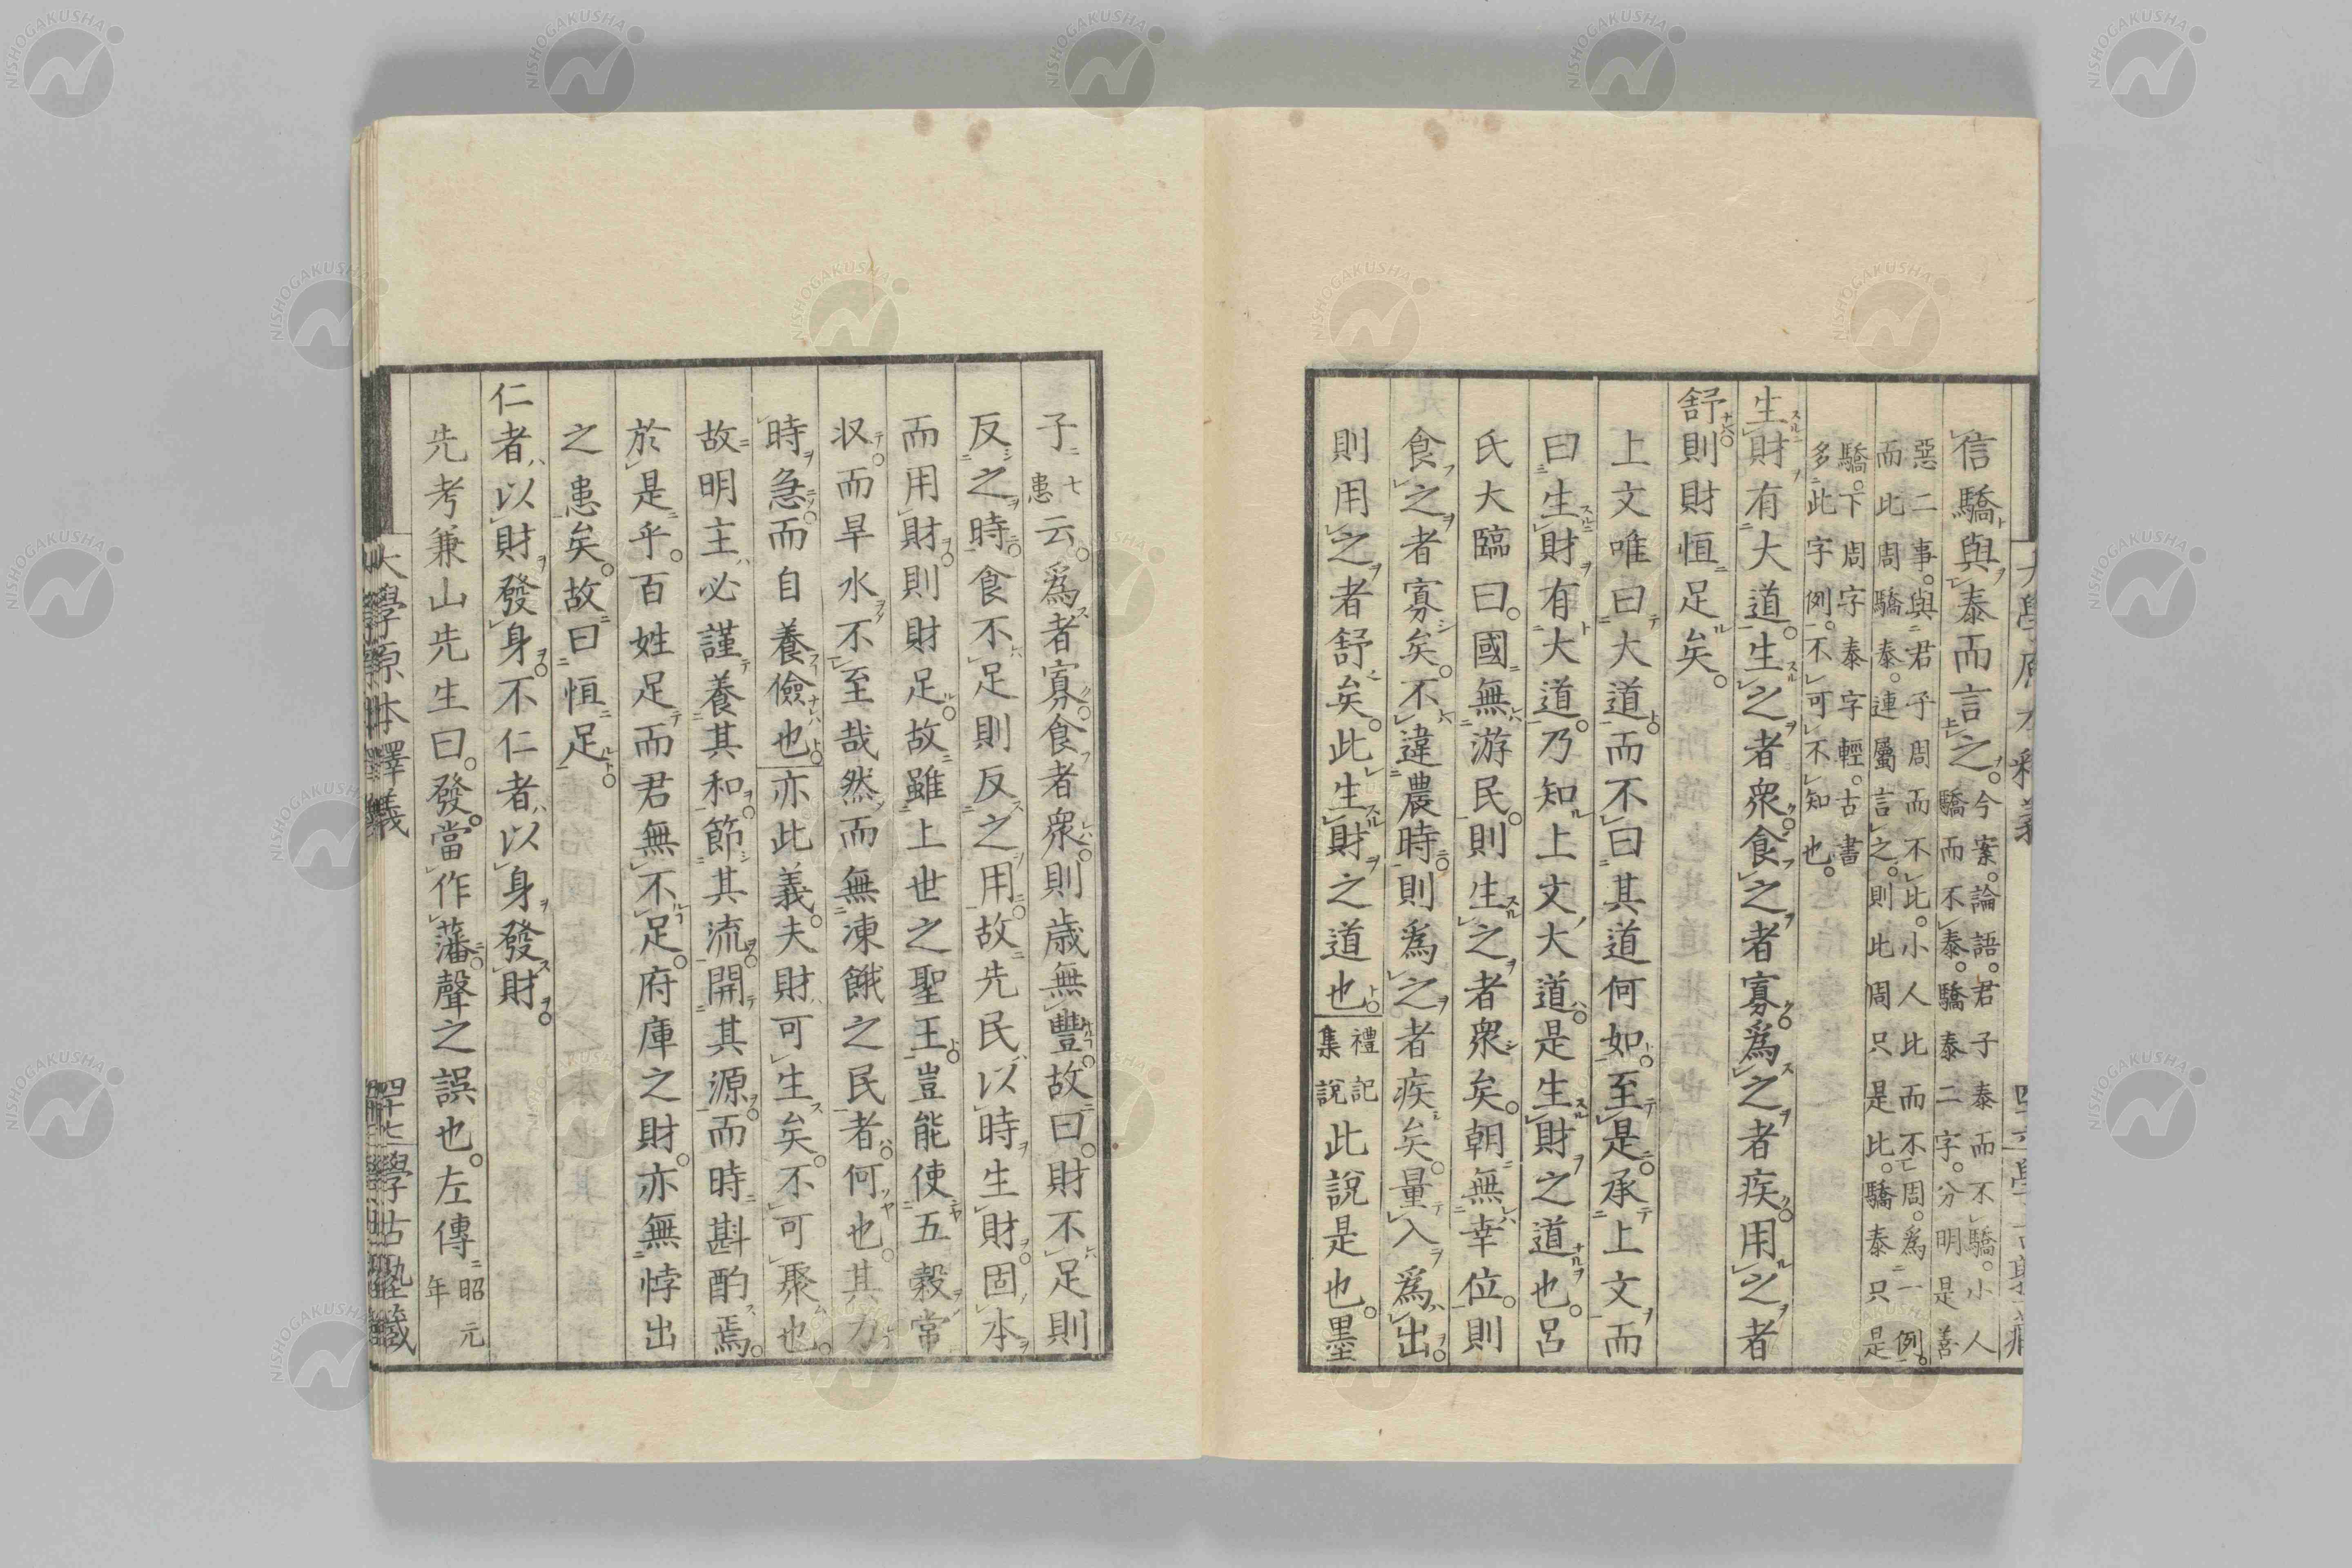 信驕與泰而言之。今案。論語。君子泰而不驕。小人
驕而不泰。驕泰二字。分明是善
惡二事。與君子周而不比。小人比而不周。爲一例。
而此周驕泰。連屬言之。則此周只是比。驕泰只是
驕。下周字泰字輕。古書
多此字例。不可不知也。
生財有大道。生之者衆。食之者寡。爲之者疾。用之者
舒。則財恒足矣。
上文唯曰大道。而不曰其道何如。至是。承上文而
曰生財有大道。乃知上文大道。是生財之道也。呂
氏大臨曰。國無游民。則生之者衆矣。朝無幸位。則
食之者寡矣。不違農時。則爲之者疾矣。量入爲出。
則用之者舒矣。此生財之道也。禮記集說此說是也。墨
子七患云。爲者寡。食者衆。則歲無豐。故曰。財不足則
反之時。食不足則反之用。故先民以時生財。固本
而用財。則財足。故雖上世之聖王。豈能使五穀常
収。而旱水不至哉。然而無凍餓之民者。何也。其力
時急。而自養儉也。亦此義。夫財可生矣。不可聚也。
故明主必謹養其和。節其流。開其源。而時斟酌焉。
於是乎。百姓足而君無不足。府庫之財。亦無悖出
之患矣。故曰恒足。
仁者以財發身。不仁者以身發財。
先考兼山先生曰。發當作藩。聲之誤也。左傳昭元年
大學原本釋義
學古塾藏